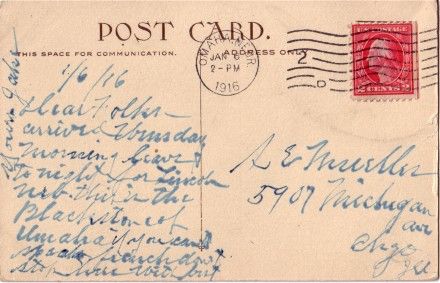 POST CARD.
THIS SPACE FOR COMMUNICATION.
ADDRESS ONLY
OMAHA, NEBR.
JAN 6
2-PM
1916
2
D
U.S. POSTAGE
2 CENTS 2
1/6/16
Dear Folks
arrived Thursday
Morning leave
tonight for Lincoln
Neb this is the
Blackstone of
Omaha if you can
spend a
stop here
Yours Jake
A E Mueller
5907 Michigan
ave
Chgo
Ill